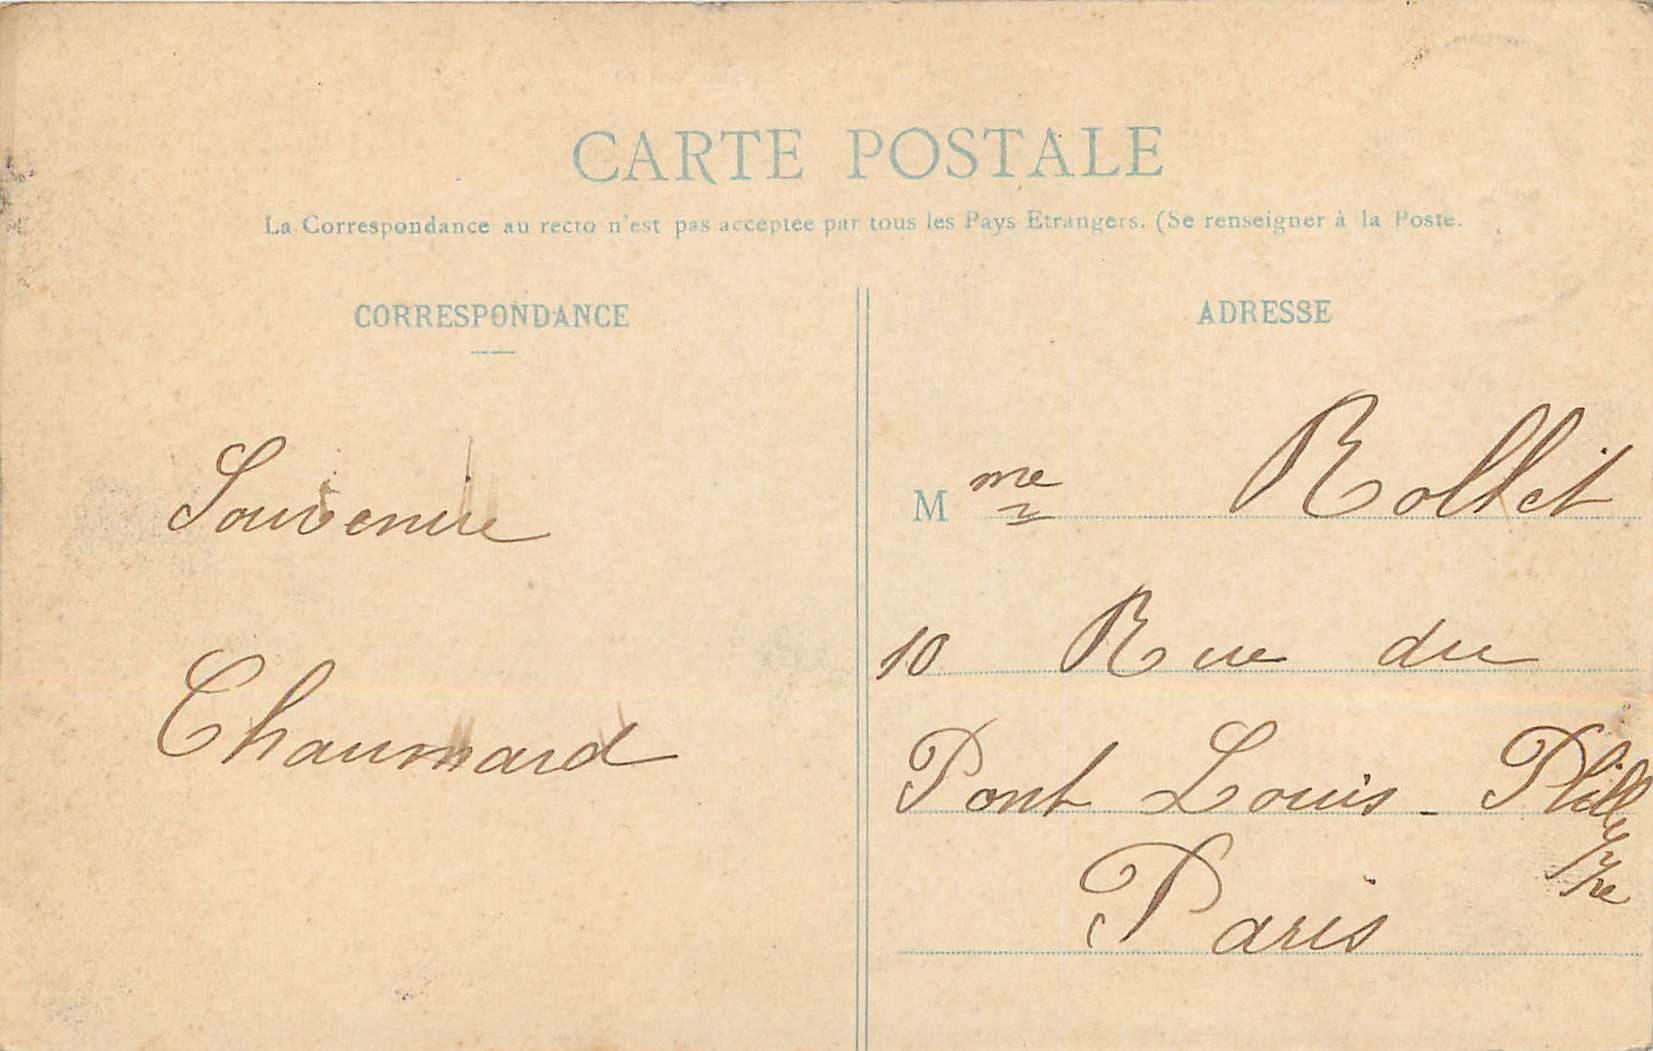 CARTE POSTALE
La Correspondance au recto n'est pas acceptée par tous les Pays Etrangers. (Se renseigner à la Poste.
CORRESPONDANCE
Souvenire
Chaumard
ADRESSE
Mme Rollet
10 Rue du
Pont Louis-Phillippe
Paris